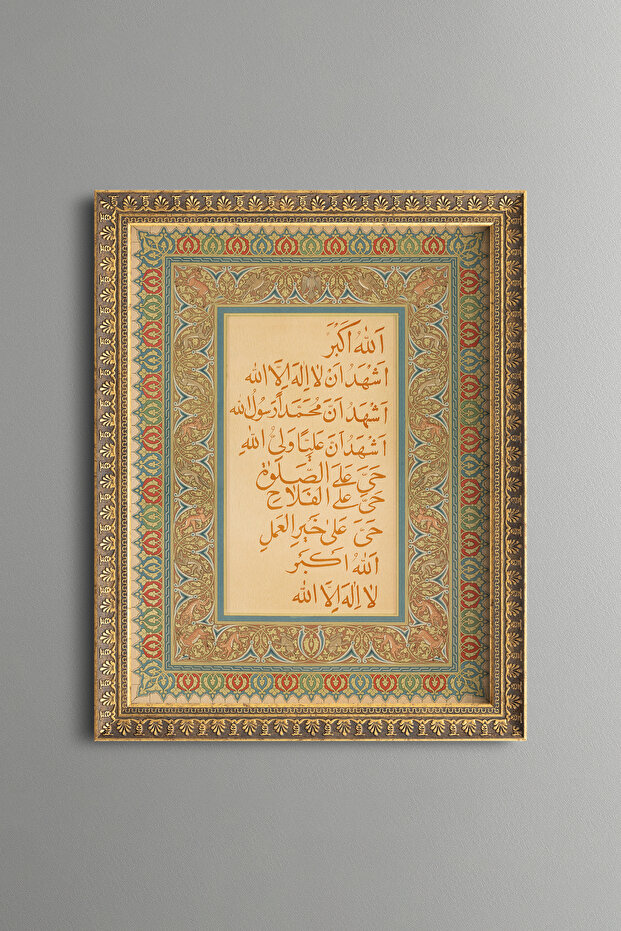 اَللهُ اَكْبَرْ
اَشْهَدُ اَنْ لَا اِلٰهَ اِلَّا الله
اَشْهَدُ اَنَّ مُحَمَّداً رَسُولُ الله
اَشْهَدُ اَنَّ عَلِيًّا وَلِيُّ اللهِ
حَيَّ عَلَى الصَّلٰوةِ
حَيَّ عَلَى الْفَلَاحْ
حَيَّ عَلٰى خَيْرِ الْعَمَلِ
اَللهُ اَكْبَر
لَا اِلٰهَ اِلَّا الله